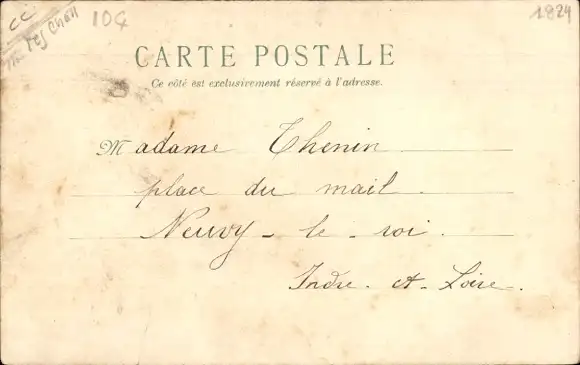 CC
10G
1824
CARTE POSTALE
Ce côté est exclusivement réservé à l'adresse.
Madame Thenin
place du mail
Neuvy-le-roi.
Indre-et-Loire.